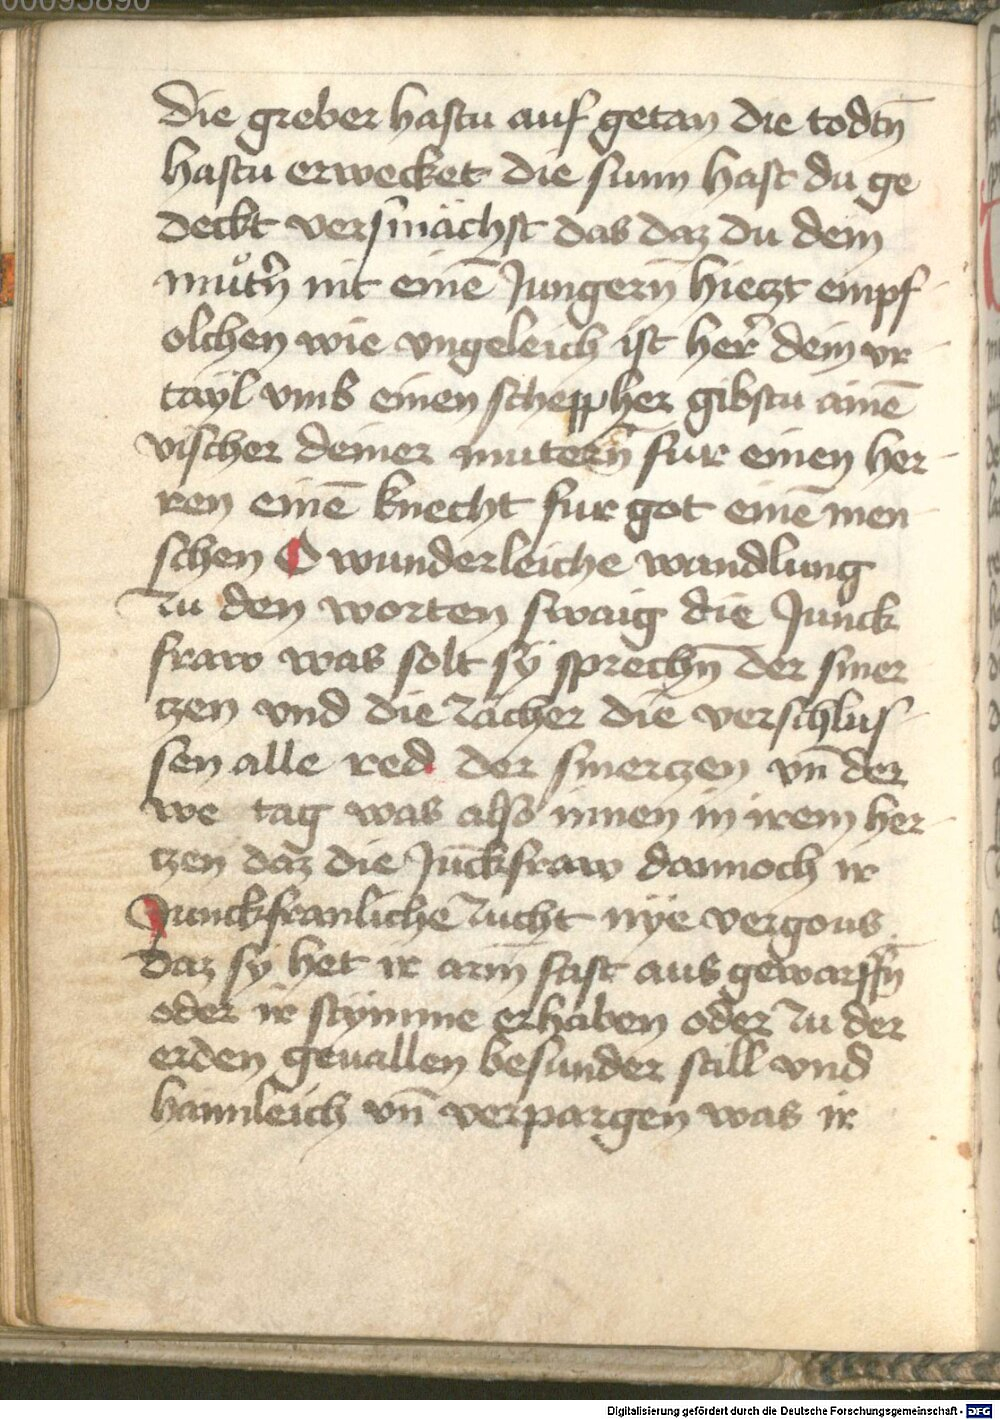 00095890
die greber hastu auf getan die todtn̄
hastu erwecket die sunn hast du ge
deckt versmächst das daz du dein
mutn̄ nit einē Jungern̄ hietzt empf
olchen wie vngeleich ist her̄ dein vr
tayl vmb einen scheppher gibstu ainē
vischer deiner mutern̄ fur einen her
ren einē knecht fur got einē men
schen O wunderleiche wandlung
zu den worten swaig die Junck
fraw was solt sÿ sprechn̄ der smer
tzen vnd die zächer die verschlus
sen alle red der smertzen vn̄ der
we tag was also innen in irem her
tzen daz die Juckfraw dannoch ir
Junckfranliche zucht nÿe vergous
daz sÿ het ir arm̄ fast aus gewarffn̄
oder ir stÿmme erhaben oder zu der
erden geuallen besunder still vnd
haimleich vn̄ verpargen was ir
Digitalisierung gefördert durch die Deutsche Forschungsgemeinschaft - DFG